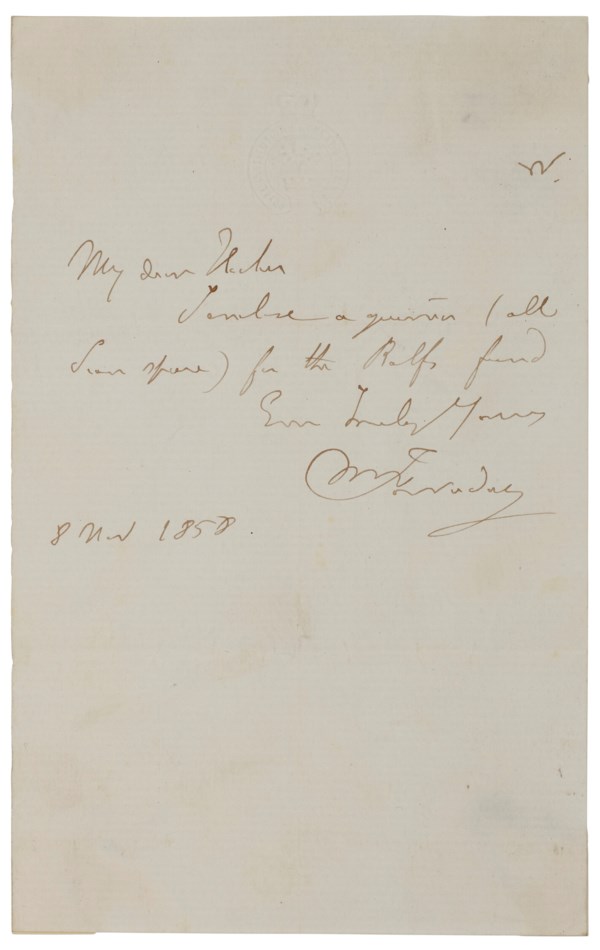 My dear Hooker
I enclose a guinea (all
I can spare) for the Ralfs fund
Ever Truly Yours
M Faraday
8 Nov 1858.